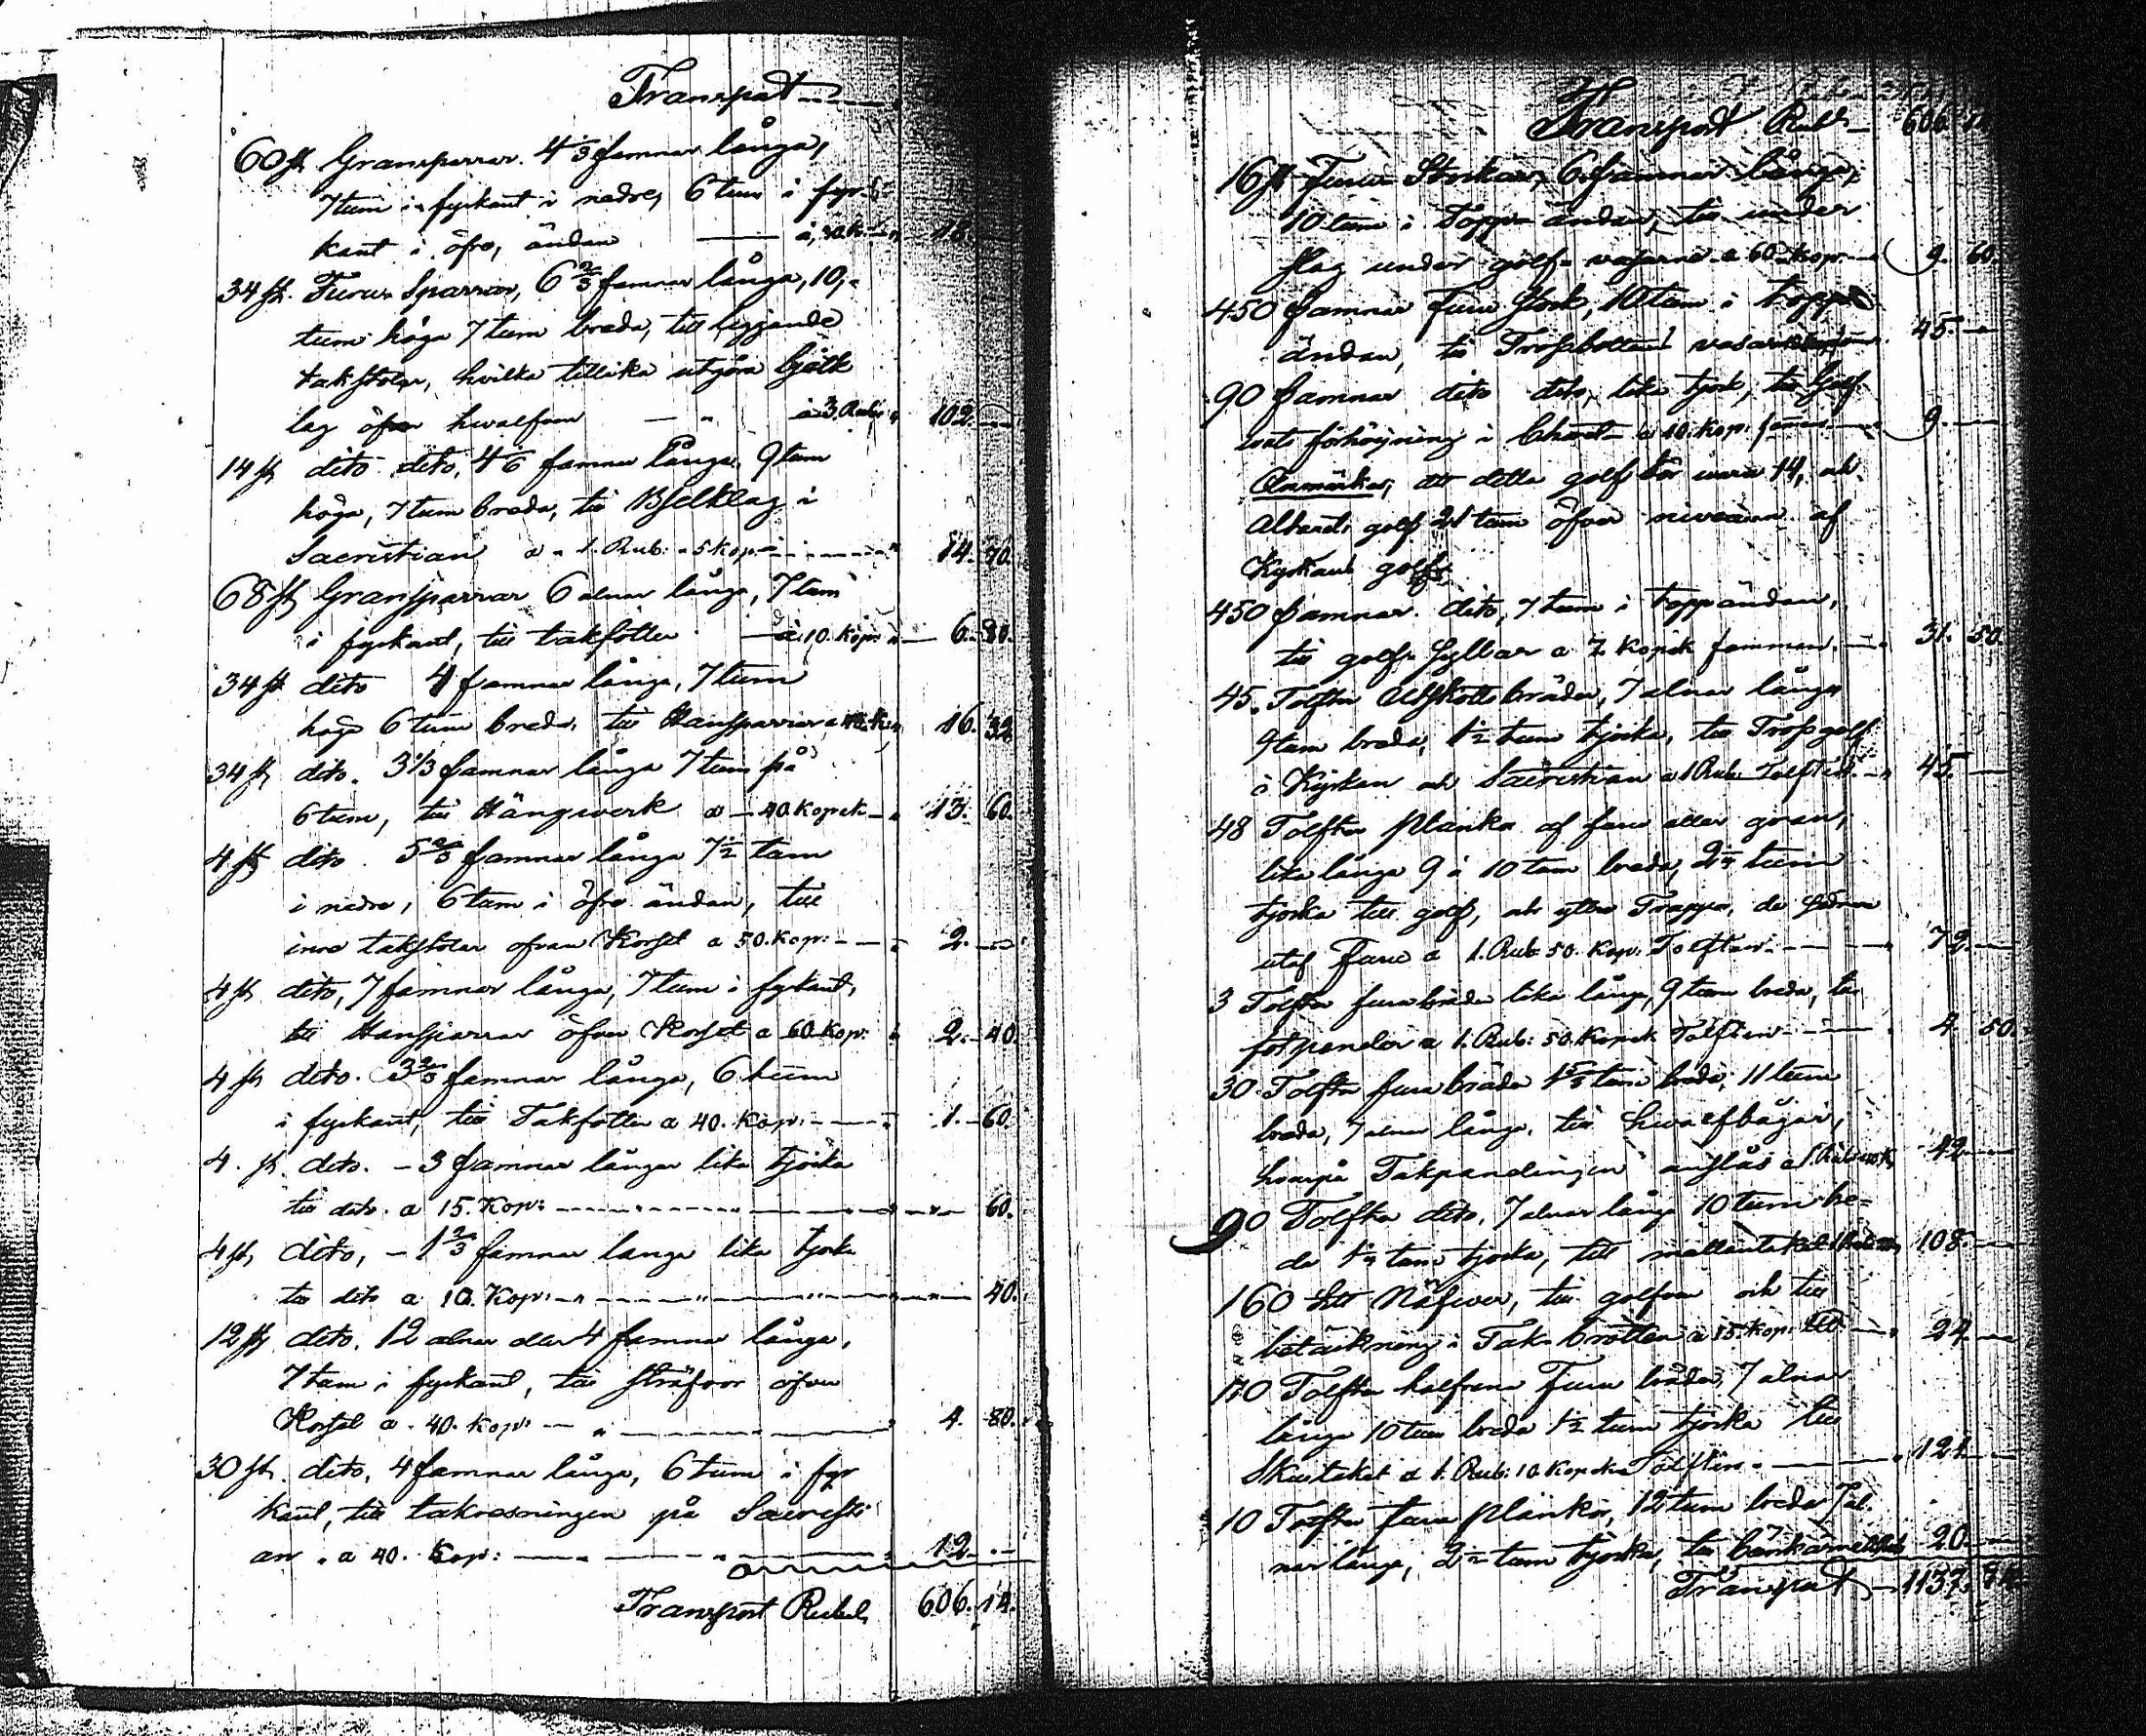 Transport
60 st Gransparrar. 4 1/3 famnar långa,
7 tum i fyrkant i nedre, 6 tum i fyr-
kant i öfre, ändan — à 30 k. 18. —
34 st. Furu Sparrar, 6 2/3 famnar långa, 10,
tum höga 7 tum breda, till liggande
takstolar, hvilka tillika utgöra bjelk
lag öfver hvalfven — " à 3. Rubl. 102. —
14 st dito dito, 4 1/6 famnar långa, 9 tum
höga, 7 tum breda, till Bjelklag i
Sacristian a 1. Rub. 5 kop. 14. 70.
68 st Gransparrar 6 alnar långa, 7 tum
i fyrkant, till takfötter — à 10. Kop. 6. 80.
34 st dito 4 famnar långa, 7 tum
höga 6 tum breda, till Hansparrar a 48 k. 16. 32
34 st dito. 3 1/3 famnar långa 7 tum på
6 tum, till Hängverk a — 40 Kopek 13. 60.
4 st dito. 5 2/3 famnar långa 7 1/2 tum
i nedre, 6 tum i öfre ändan, till
inre takstolar ofvan Korset a 50. Kop: 2. —
4 st dito, 7 famnar långa, 7 tum i fyrkant,
till Hansparrar öfver Korset a 60 Kop: 2. 40.
4 st dito. 3 2/3 famnar långa, 6 tum
i fyrkant, till Takfötter a 40. Kop: 1. 60.
4. st. dito. — 3 famnar långa lika tjocka
till dito. a 15. Kop: 60.
4 st, dito, — 1 2/3 famnar langa lika tjocka
till dito a 10. Kop: 40.
12 st dito. 12 alnar eller 4 famnar långa,
7 tum i fyrkant, till sträfvor öfver
Korset a. 40. Kop: — " 4. 80.
30 st. dito, 4 famnar långa, 6 tum i fyr
kant, till takresningen på Sacristi
an. a 40. Kop: — 12. —
Transport Rubel, 606. 14.
Transport Rubl. 606. 14
16 st Furu Stockar, 6 famnar långa,
10 tum i Topp ändan, till under
slag under golf-vasarne a 60 kop: 9. 60.
450 famnar Furu Stock, 10 tum i topp
ändan, till Trossbotten vasar 45. —
90 famnar dito dito, lika tjock, till Golf
förhöjning i Choret a 10. kop. famn 9. —
Anmärkes, att detta golf bör vara 14, och
Altarets golf 21 tum öfver niveaun af
Kyrkans golf.
450 famnar. dito, 7 tum i toppändan,
till golf Syllar a 7 Kopek famnen. 31. 50.
45. Tolfter Utskotts bräder, 7 alnar långa
9 tum breda, 1 1/2 tum tjocka, till Trossgolf
i Kyrkan och Sacristian a 1 Rub. Tolften. 45. —
48 Tolfter Planka af furu eller gran,
lika långa 9 à 10 tum breda, 2 1/4 tum
tjocka till golf, och yttre Trappa, de sednare
utaf Furu a 1. Rub 50. Kop: Tolften. 72. —
3 Tolfter furubräder lika långa, 9 tum breda, till
fotpaneler a 1. Rub: 50. Kopek Tolften 4. 50.
30. Tolfter furu bräder 1 1/2 tum breda, 11 tum
breda, 7 alnar långa. till hvalfbågar,
hvarpå Takpanelingen anslås a 1 Rub 40 K 42 —
90 Tolfter dito, 7 alnar långa 10 tum bre-
da 1 1/4 tum tjocka, till mellantaket 108. —
160 Lill Näfver, till golfven och till
betäckning i Tak brotten a 15. Kop: Lill. 24 —
110 Tolfter halfrena Furu bräder, 7 alnar
långa 10 tum breda 1 1/2 tum tjocka till
Skurtaket a 1. Rub: 10. Kopek Tolften. 121. —
10 Tolfter furu Plankor, 12 tum breda 7 al-
nar långa, 2 1/2 tum tjocka, till 20. —
Transport 1137. 74